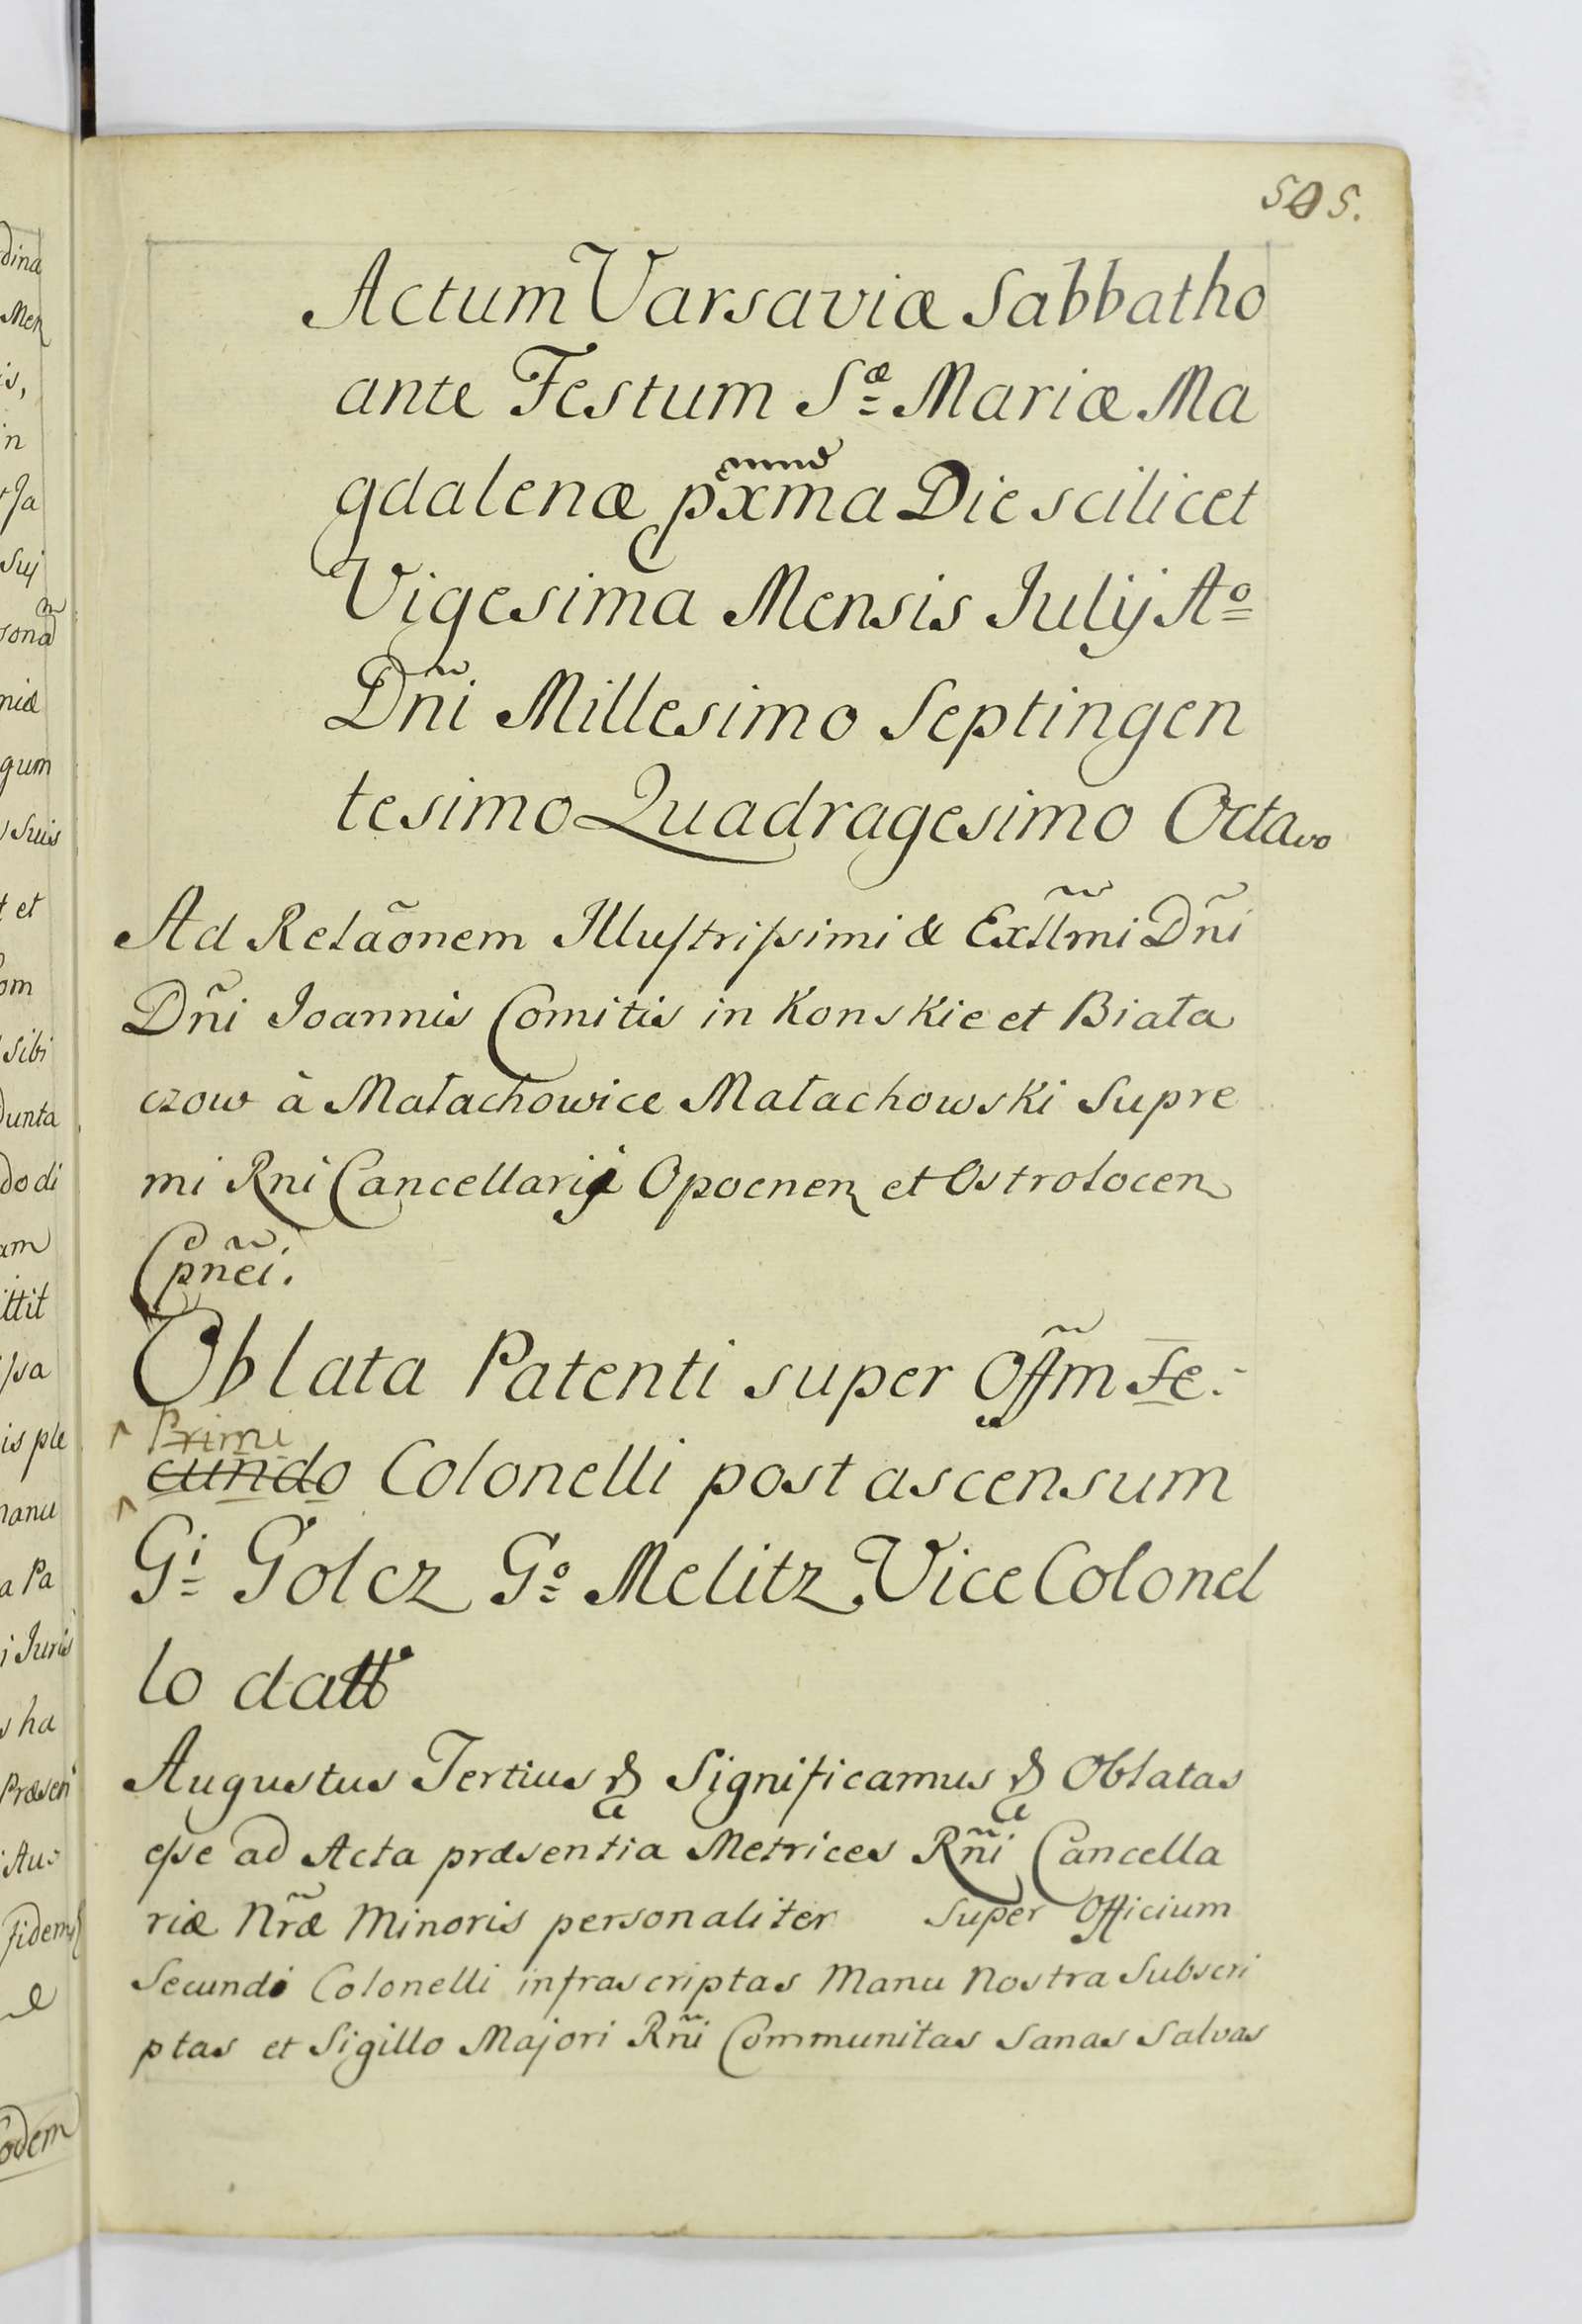 505.
Actum Varsaviæ Sabbatho
ante Festum Sæ Mariæ Ma
gdalenæ pxma Die scilicet
Vigesima Mensis Julij Ao
Dn̄i Millesimo Septingen
tesimo Quadragesimo Octavo
Ad Relaõnem Illustrissimi & Exllm̃i Dñi
Dñi Joannis Comitis in Konskie et Biała
czow à Małachowice Małachowski Supre
mi Rni Cancellarij Opocnen et Ostrołocen
Cpñei.
Oblata Patenti super Offm̃ Se-
Primi
cundo Colonelli post ascensum
Gi Golcz Go Melitz Vice Colonel
lo datt
Augustus Tertius & Significamus & Oblatas
esse ad Acta præsentia Metrices Rñi Cancella
riæ Nr̃æ Minoris personaliter super Officium
Secundi Colonelli infrascriptas Manu Nostra Subscri
ptas et Sigillo Majori Rñi Communitas Sanas Salvas
dina
Men
is,
in
Ja
suj
sona
niæ
gum
suis
t et
om
sibi
unta
do di
am
ittit
psa
is ple
manu
a Pa
i Juris
s ha
Præsen
Au-
fidem
odem